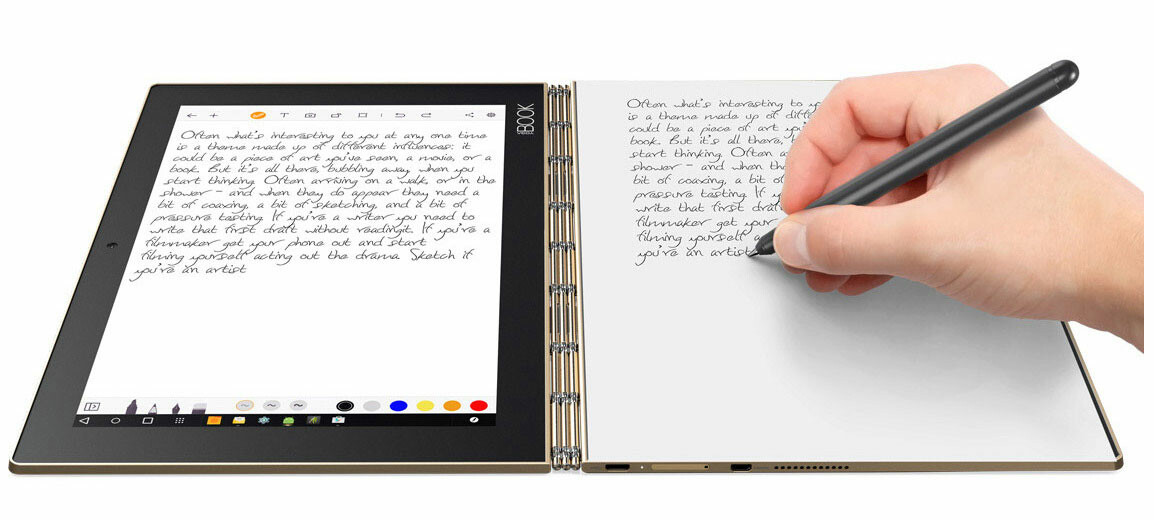 YOGA BOOK
Often what's interesting to you at any one time
is a theme made up of different influences: it
could be a piece of art you've seen, a movie, or a
book. But it's all there, bubbling away, when you
start thinking. Often arriving on a walk, or in the
shower - and when they do appear they need a
bit of coaxing, a bit of sketching, and a bit of
pressure testing. If you're a writer you need to
write that first draft without readingit. If you're a
filmmaker get your phone out and start
filming yourself acting out the drama. Sketch if
you're an artist
Often what's interesting to
is a theme made up of
could be a piece of art
book. But it's all there,
start thinking. Often
shower - and when
bit of coaxing, a bit of
pressure testing. If
write that first draft
filmmaker get your
filming yourself
you're an artist